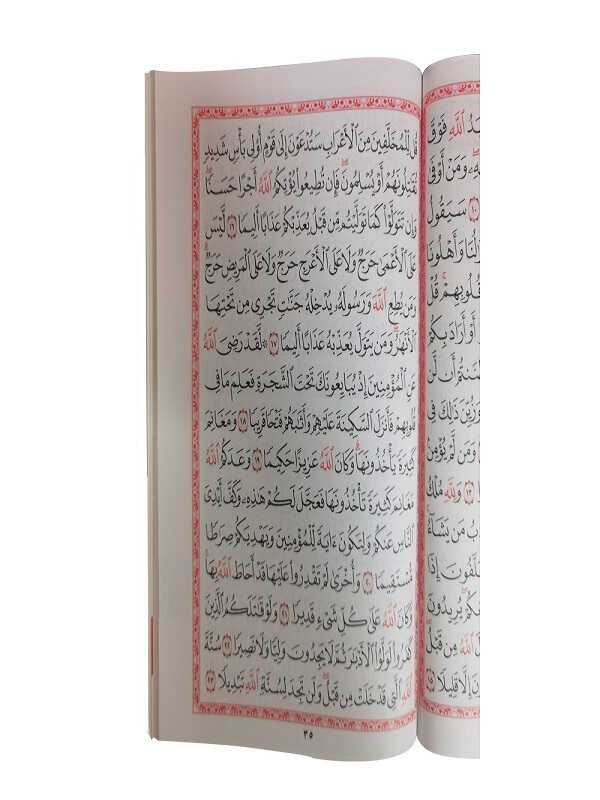 ٱللَّهِ فَوْقَ
وَمَنْ أَوْفَىٰ
١٠ سَيَقُولُ
وَأَهْلُونَا
قُلُوبِهِمْ قُلْ
أَوْ أَرَادَ بِكُمْ
أَن لَّن
وَزُيِّنَ ذَٰلِكَ فِى
وَمَن لَّمْ يُؤْمِنۢ
١٣ وَلِلَّهِ مُلْكُ
مَن يَشَآءُ
إِذَا
يُرِيدُونَ
ٱللَّهُ مِن قَبْلُ
إِلَّا قَلِيلًا ١٥
قُل لِّلْمُخَلَّفِينَ مِنَ ٱلْأَعْرَابِ سَتُدْعَوْنَ إِلَىٰ قَوْمٍ أُو۟لِى بَأْسٍ شَدِيدٍ
تُقَٰتِلُونَهُمْ أَوْ يُسْلِمُونَ ۖ فَإِن تُطِيعُوا۟ يُؤْتِكُمُ ٱللَّهُ أَجْرًا حَسَنًا ۖ
وَإِن تَتَوَلَّوْا۟ كَمَا تَوَلَّيْتُم مِّن قَبْلُ يُعَذِّبْكُمْ عَذَابًا أَلِيمًا ١٦ لَّيْسَ
عَلَى ٱلْأَعْمَىٰ حَرَجٌ وَلَا عَلَى ٱلْأَعْرَجِ حَرَجٌ وَلَا عَلَى ٱلْمَرِيضِ حَرَجٌ ۗ
وَمَن يُطِعِ ٱللَّهَ وَرَسُولَهُۥ يُدْخِلْهُ جَنَّٰتٍ تَجْرِى مِن تَحْتِهَا
ٱلْأَنْهَٰرُ ۖ وَمَن يَتَوَلَّ يُعَذِّبْهُ عَذَابًا أَلِيمًا ١٧ ۞ لَّقَدْ رَضِىَ ٱللَّهُ
عَنِ ٱلْمُؤْمِنِينَ إِذْ يُبَايِعُونَكَ تَحْتَ ٱلشَّجَرَةِ فَعَلِمَ مَا فِى
قُلُوبِهِمْ فَأَنزَلَ ٱلسَّكِينَةَ عَلَيْهِمْ وَأَثَٰبَهُمْ فَتْحًا قَرِيبًا ١٨ وَمَغَانِمَ
كَثِيرَةً يَأْخُذُونَهَا ۗ وَكَانَ ٱللَّهُ عَزِيزًا حَكِيمًا ١٩ وَعَدَكُمُ ٱللَّهُ
مَغَانِمَ كَثِيرَةً تَأْخُذُونَهَا فَعَجَّلَ لَكُمْ هَٰذِهِۦ وَكَفَّ أَيْدِىَ
ٱلنَّاسِ عَنكُمْ وَلِتَكُونَ ءَايَةً لِّلْمُؤْمِنِينَ وَيَهْدِيَكُمْ صِرَٰطًا
مُّسْتَقِيمًا ٢٠ وَأُخْرَىٰ لَمْ تَقْدِرُوا۟ عَلَيْهَا قَدْ أَحَاطَ ٱللَّهُ بِهَا ۚ
وَكَانَ ٱللَّهُ عَلَىٰ كُلِّ شَىْءٍ قَدِيرًا ٢١ وَلَوْ قَٰتَلَكُمُ ٱلَّذِينَ
كَفَرُوا۟ لَوَلَّوُا۟ ٱلْأَدْبَٰرَ ثُمَّ لَا يَجِدُونَ وَلِيًّا وَلَا نَصِيرًا ٢٢ سُنَّةَ
ٱللَّهِ ٱلَّتِى قَدْ خَلَتْ مِن قَبْلُ ۖ وَلَن تَجِدَ لِسُنَّةِ ٱللَّهِ تَبْدِيلًا ٢٣
٣٥